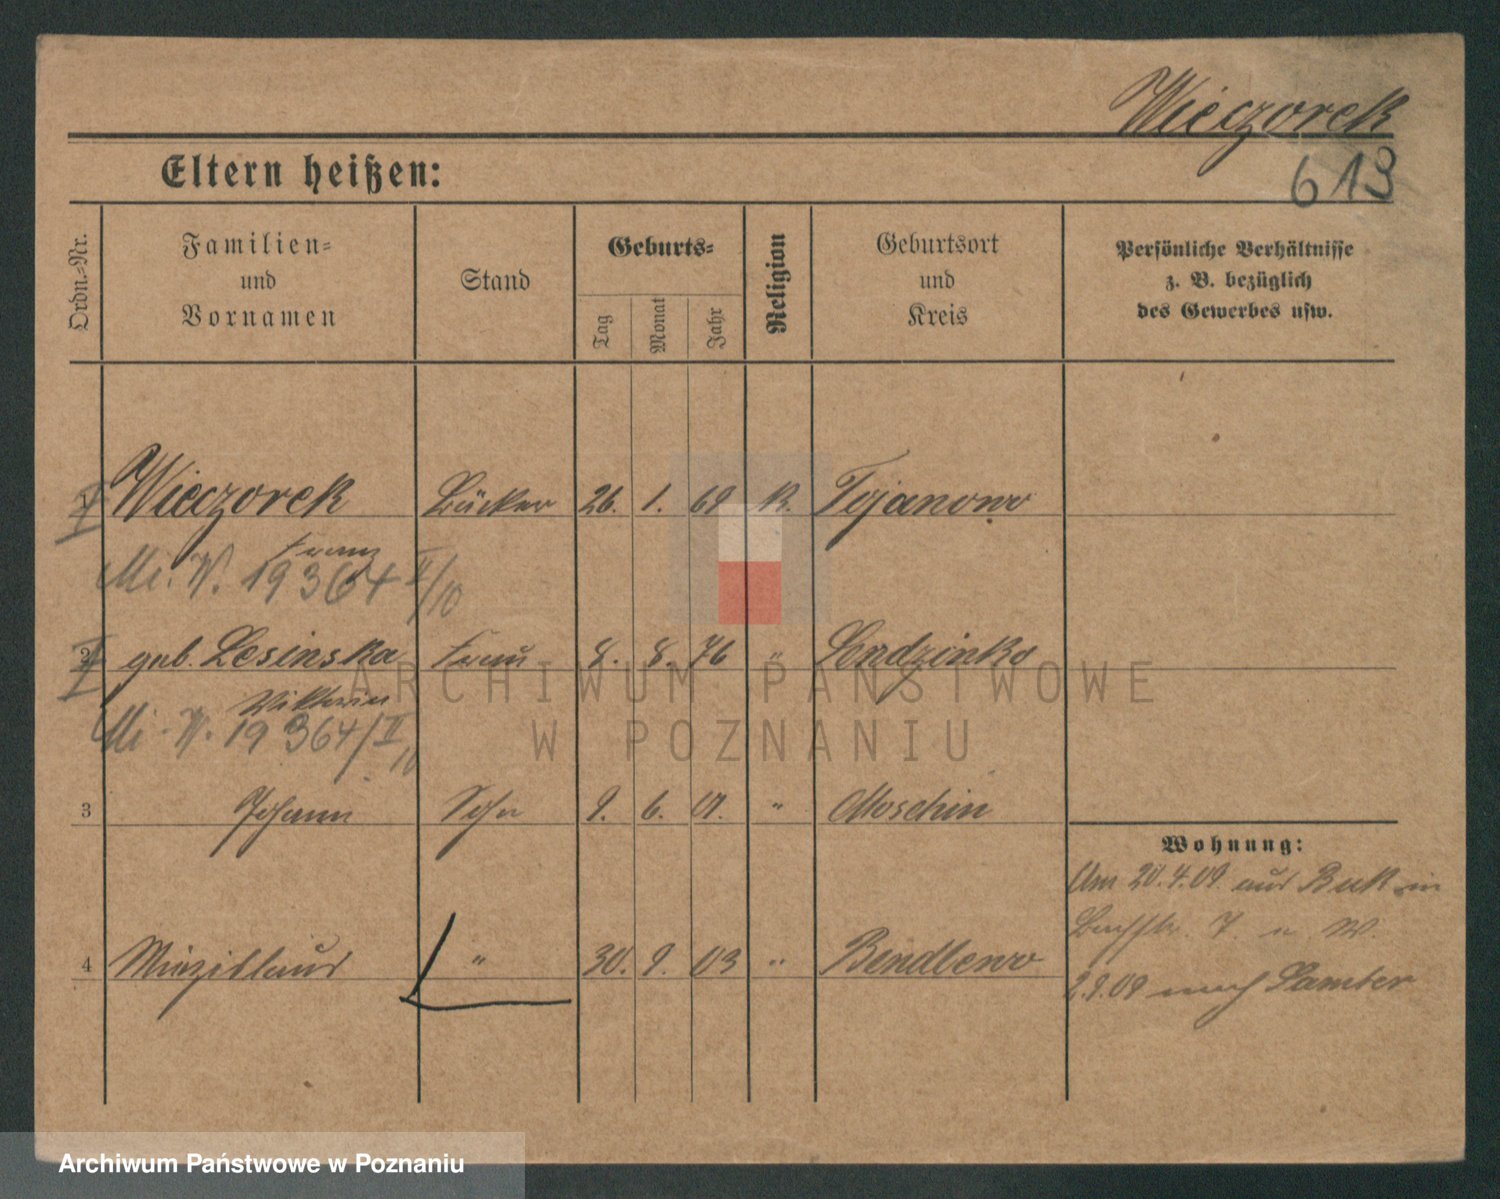 Wieczorek
613
Eltern heißen:
Ordn.-Nr.
Familien-
und
Vornamen
Stand
Geburts-
Tag
Monat
Jahr
Religion
Geburtsort
und
Kreis
Persönliche Verhältnisse
z. B. bezüglich
des Gewerbes usw.
1 Wieczorek Bäcker 26. 1. 69 K. Tojanowo
Franz
Mi. W. 19364 II/10
2 geb. Lesinska Frau 8. 8. 76 " Lendzinko
Mi. W. 19364/II 10
3 Johann Sohn 9. 6. 01. " Moschin
Wohnung:
Am 20.4.09. aus Buk in
7. W.
4 " 30. 9. 03 " Bendlewo
2.9.09 nach Samter
ARCHIWUM PAŃSTWOWE
W POZNANIU
Archiwum Państwowe w Poznaniu